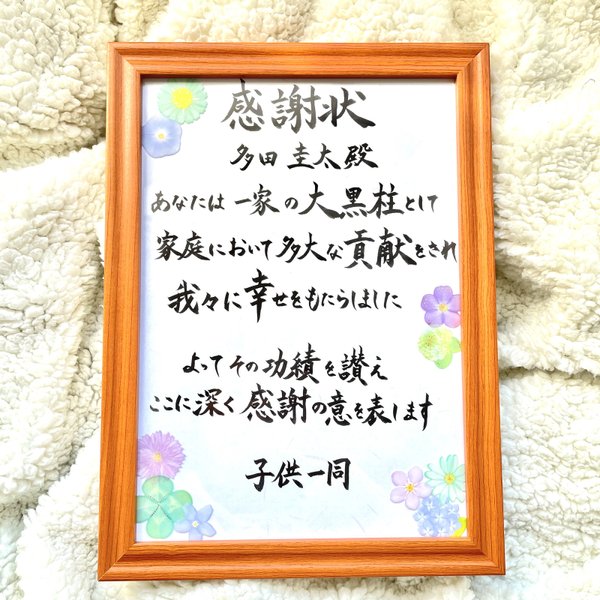 感謝状
多田 圭太殿
あなたは一家の大黒柱として
家庭において多大な貢献をされ
我々に幸せをもたらしました
よってその功績を讃え
ここに深く感謝の意を表します
子供一同